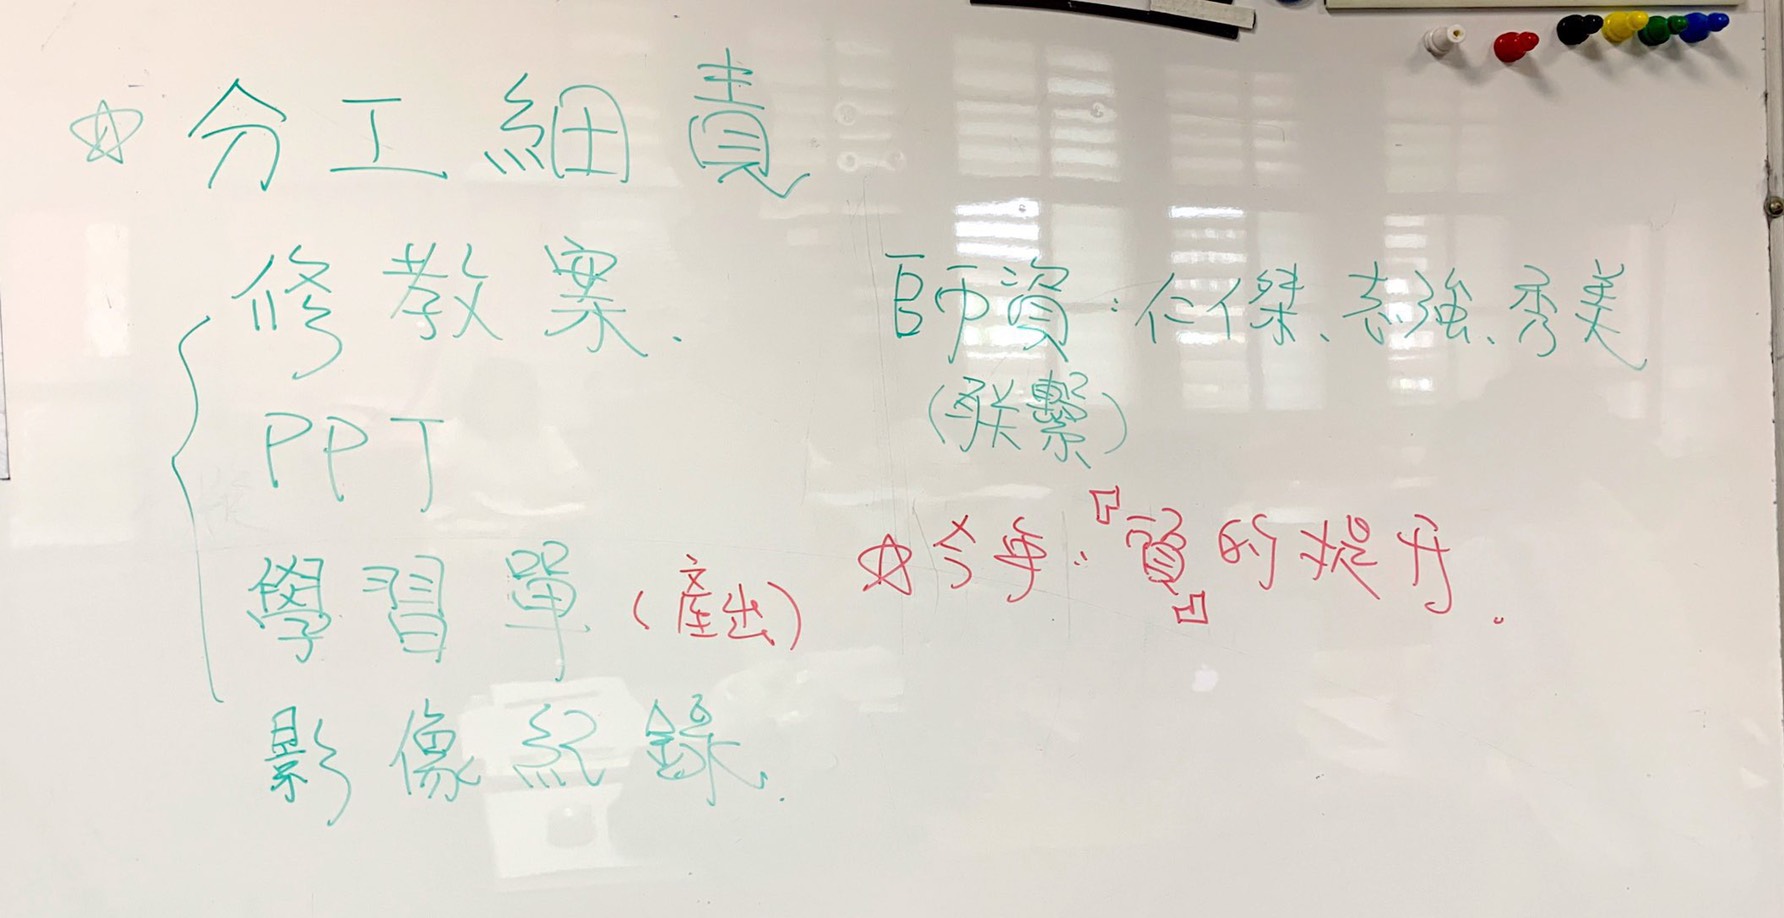 ☆分工細責
修教案.
PPT
學習單(產出)
影像紀錄.
師資:仁傑、志強、秀美
(聯繫)
☆今年:『質』的提升.